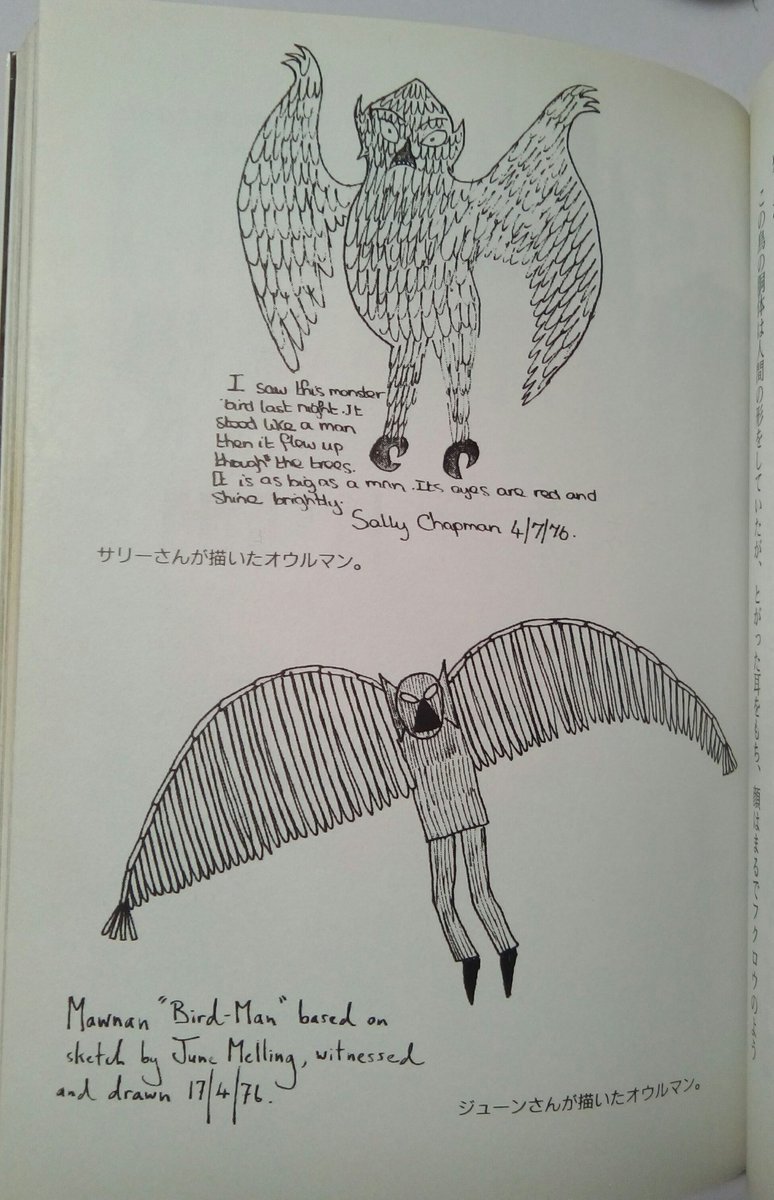 I saw this monster
bird last night. It
stood like a man
then it flew up
though the trees.
It is as big as a man. Its eyes are red and
shine brightly.
Sally Chapman 4/7/76.
サリーさんが描いたオウルマン。
Mawnan "Bird-Man" based on
sketch by June Melling, witnessed
and drawn 17/4/76.
ジューンさんが描いたオウルマン。
この鳥の胴体は人間の形をしていたが、とがった耳をもち、顔はまるでフクロウの